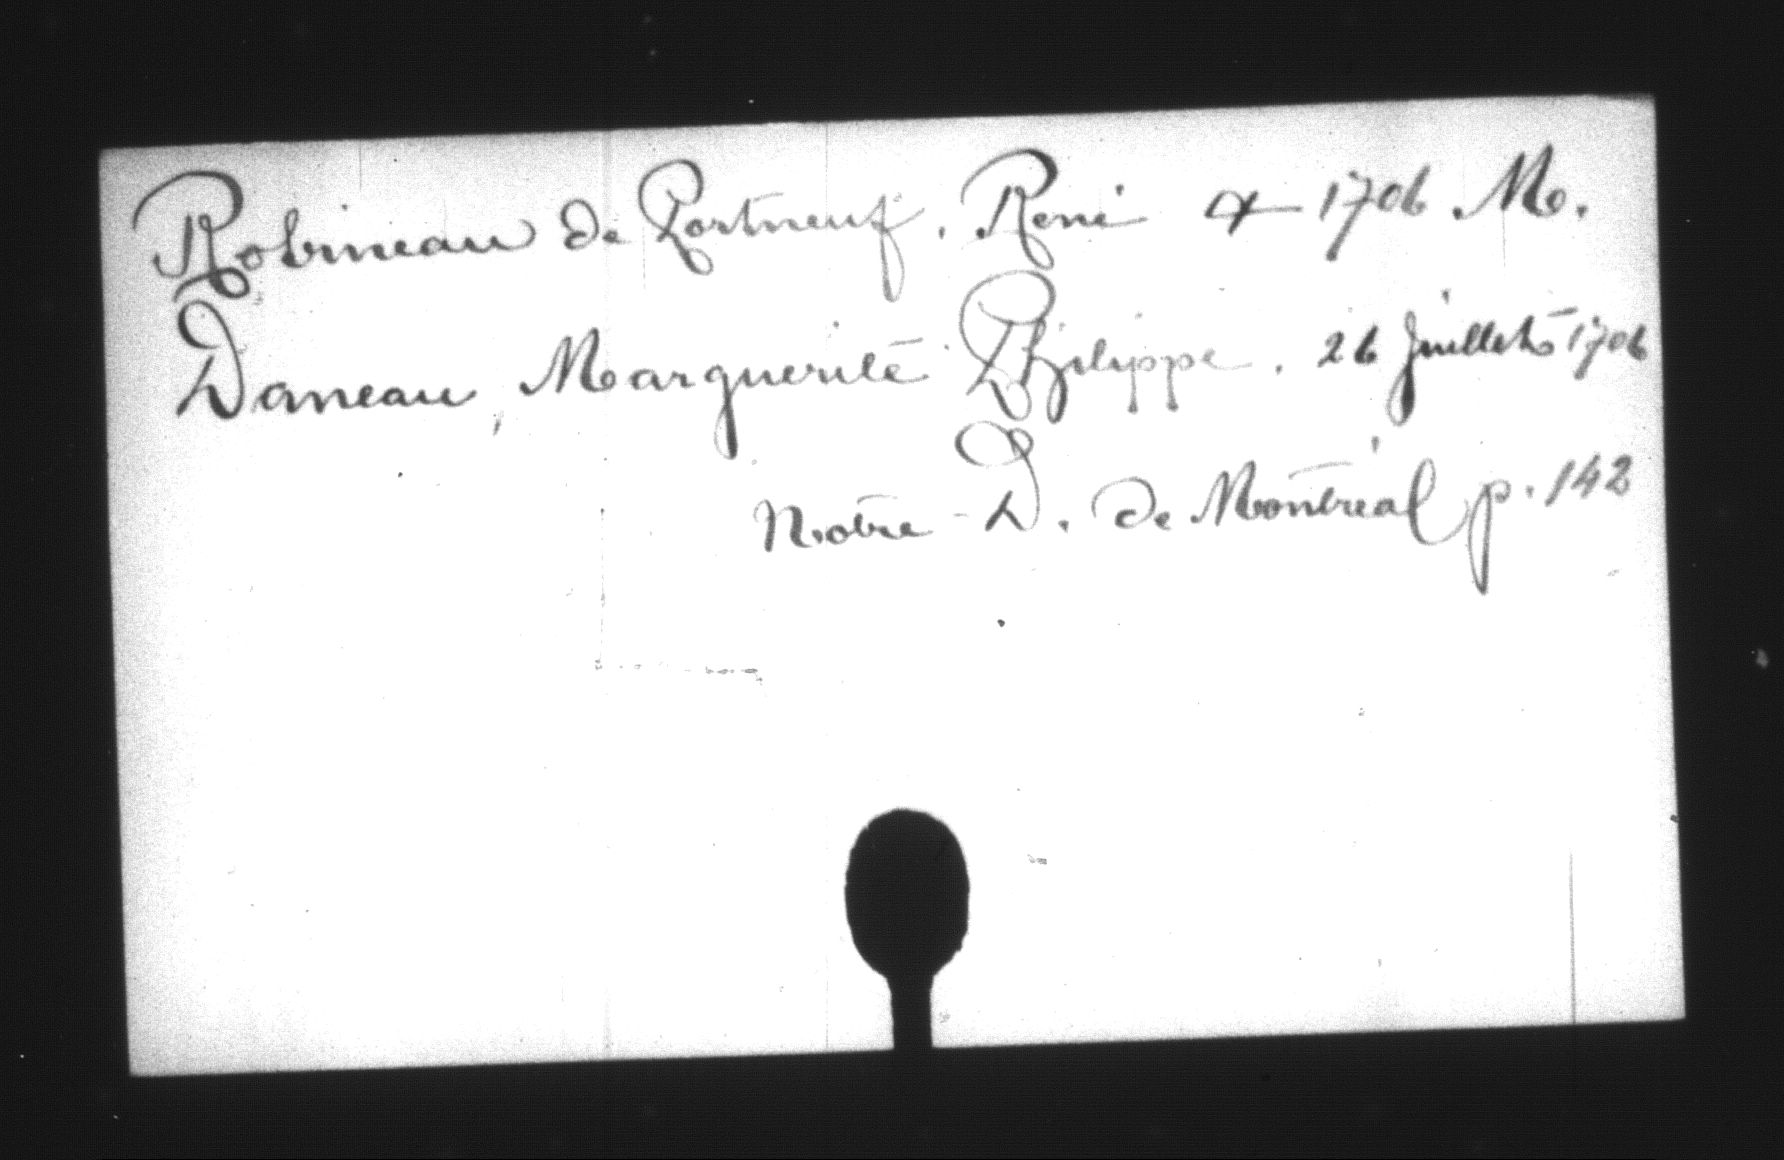 Robineau de Portneuf, René & 1706 M.
Daneau, Marguerite Philippe. 26 Juillet 1706
Notre-D. de Montréal p. 142